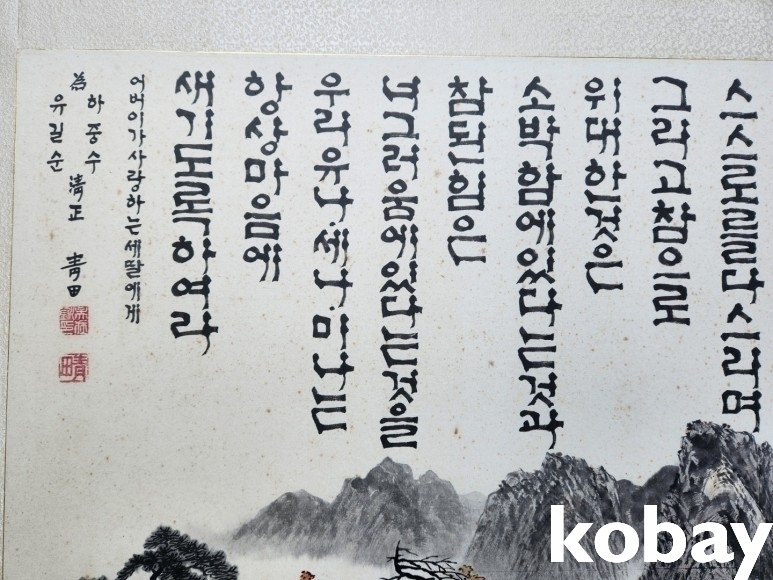 스스로를다스리며
그리고참으로
위대한것은
소박함에있다는것과
참된힘은
너그러움에있다는것을
우리유나·세나·미나는
항상마음에
새기도록하여라
어버이가사랑하는세딸에게
하중수 淸正 靑田
爲
유길순
kobay